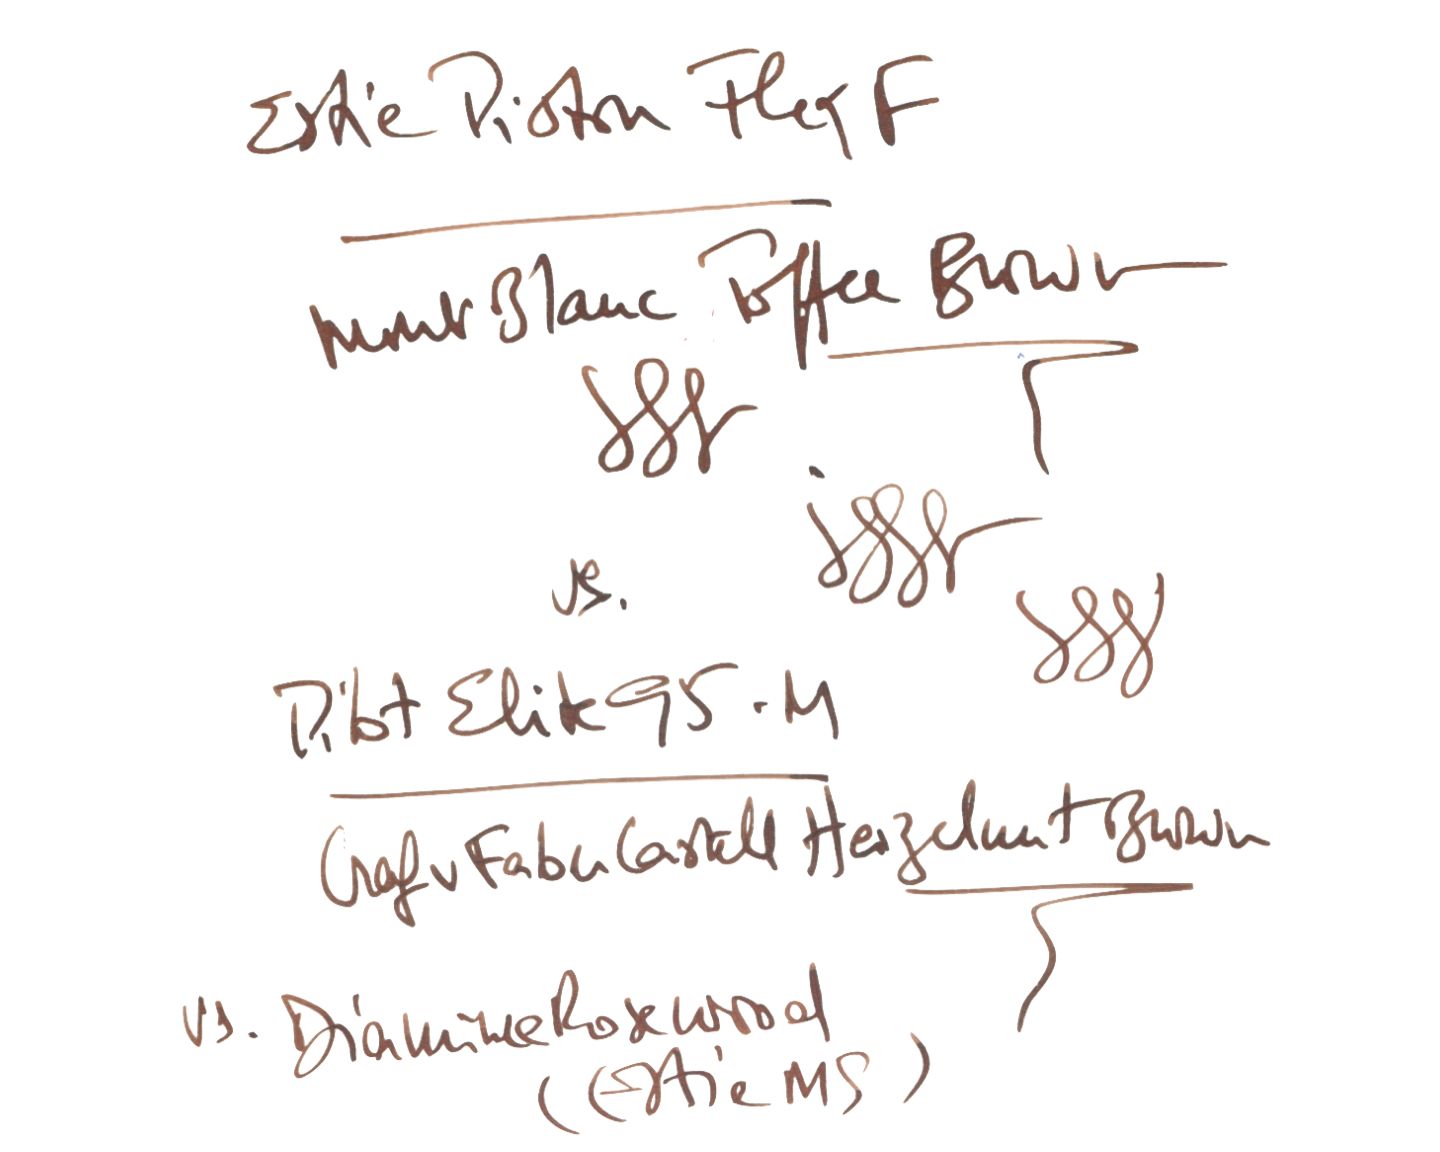 Estie Piston Flex F
MontBlanc Toffee Brown
vs.
Pilot Elite 95 - M
Graf v Faber Castell Hazelnut Brown
vs. Diamine Rosewood
(Estie MS)